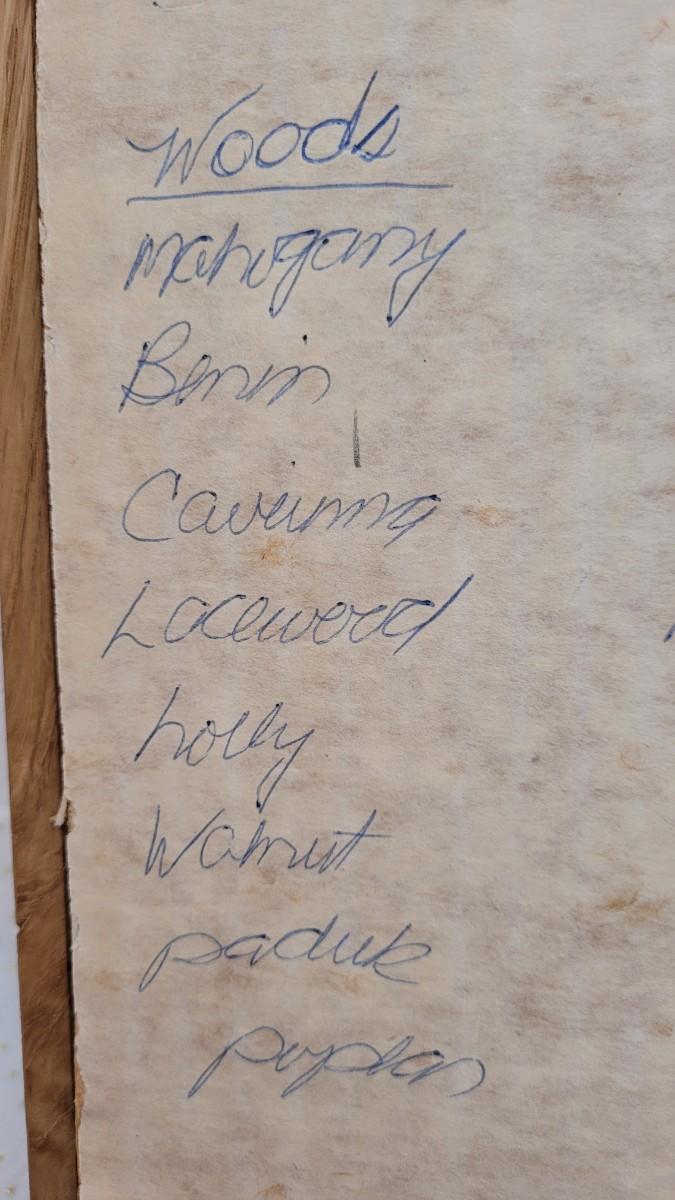 Woods
Mahogany
Benin
Caviunna
Lacewood
holly
Walnut
paduk
poplar